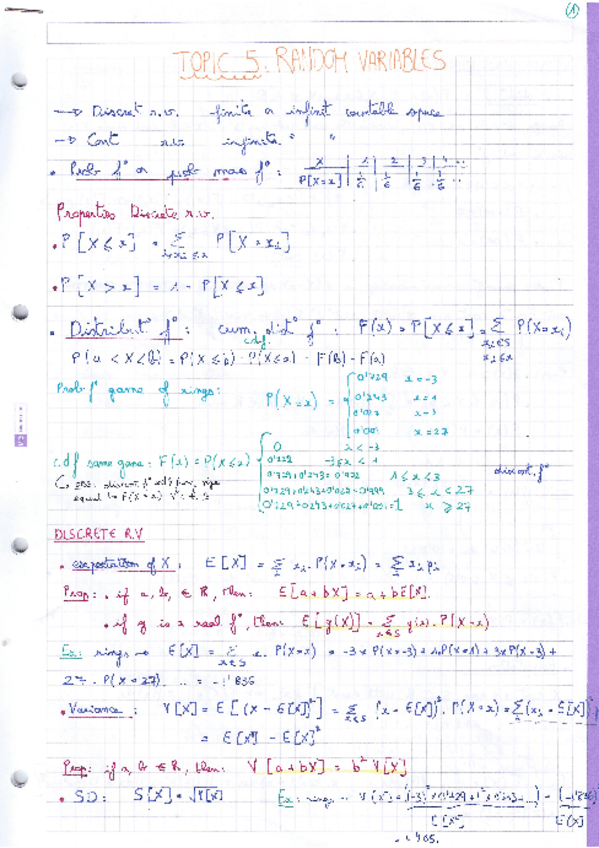 1
TOPIC 5. RANDOM VARIABLES
→ Discret r.v. finite or infinit countable space
→ Cont r.v. infinite " "
• Prob f° or prob mass f° : X | 1 | 2 | 3 | 4 ...
P[X=x] | 1/6 | 1/6 | 1/6 | 1/6 ...
Properties Discrete r.v.
• P[X ≤ x] = Σ P[X = xi]
xi ≤ x
• P[X > x] = 1 - P[X ≤ x]
• Distribut° f° : cum. dist° f° : F(x) = P[X ≤ x] = Σ P(X=xi)
c.d.f. xi∈S
P(a < X < b) = P(X ≤ b) - P(X ≤ a) = F(b) - F(a) xi≤x
Prob f° game of rings : P(X=x) =
0'729 x = -3
0'243 x = 1
0'027 x = 3
0'001 x = 27
c.d.f same game : F(x) = P(X ≤ x)
0 x < -3
0'729 -3 ≤ x < 1
0'729 + 0'243 = 0'972 1 ≤ x < 3
0'729 + 0'243 + 0'027 = 0'999 3 ≤ x < 27
0'729 + 0'243 + 0'027 + 0'001 = 1 x ≥ 27
discont. f°
DISCRETE R.V
• expectation of X : E[X] = Σ xi . P(X = xi) = Σ xi pi
Prop : • if a, b, ∈ R, then : E[a + bX] = a + bE[X].
• if g is a real f°, then : E[g(X)] = Σ g(x) . P(X = x)
x∈S
Ex : rings → E[X] = Σ x . P(X=x) = -3 × P(X=-3) + 1 . P(X=1) + 3 × P(X=3) +
x∈S
27 . P(X = 27) ... = -1'836
• Variance : V[X] = E[(X - E[X])²] = Σ (x - E[X])² . P(X=x) = Σ (xi - E[X])²
x∈S
= E[X²] - E[X]²
Prop : if a, b ∈ R, then : V[a + bX] = b² V[X]
• SD : S[X] = √V[X] Ex : rings → V(X) = ((-3)² × 0'729 + 1² × 0'243 + ...) - (-1'836)
E[X²] E(X)